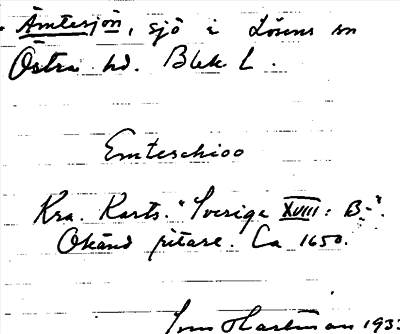 Ämtesjön, sjö i Lösens sn
Östra hd. Blek. L.
Emteschioo
Kra. Kart. "Sverige XVIII: B-".
Okänd ritare. Ca 1650.
Sven Hartman 193